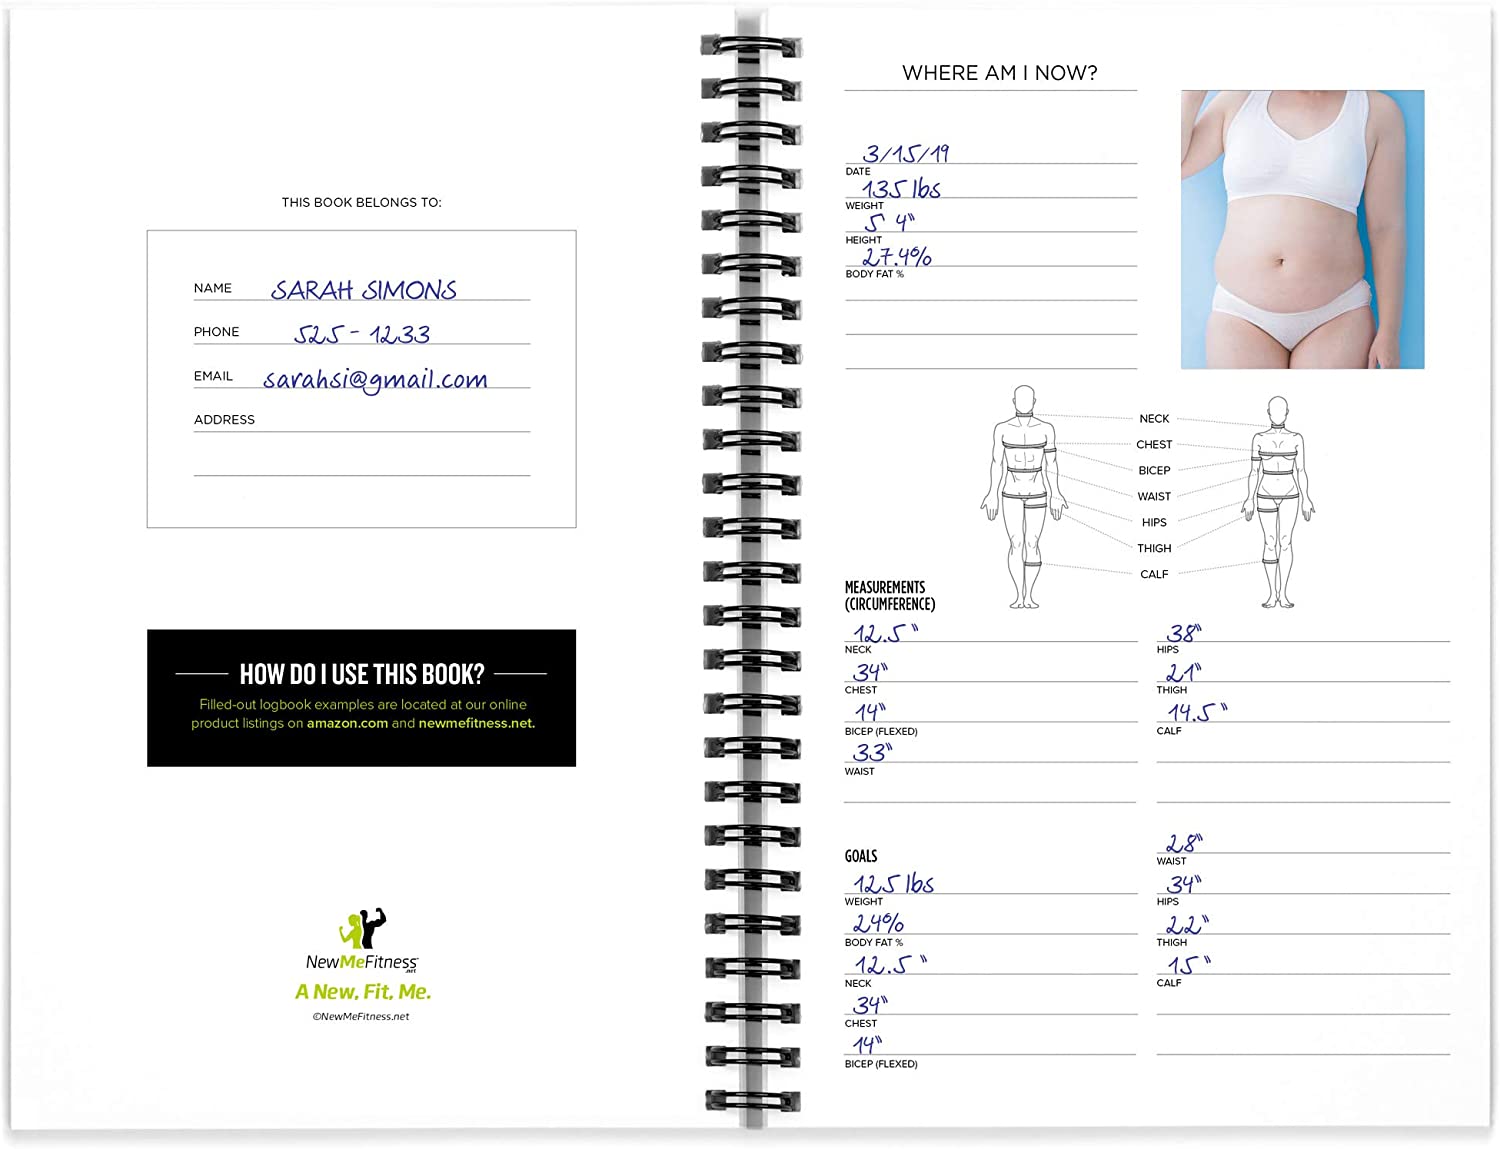 THIS BOOK BELONGS TO:
NAME SARAH SIMONS
PHONE 525 - 1233
EMAIL sarahsi@gmail.com
ADDRESS
HOW DO I USE THIS BOOK?
Filled-out logbook examples are located at our online
product listings on amazon.com and newmefitness.net.
NewMeFitness
.net
A New, Fit, Me.
©NewMeFitness.net
WHERE AM I NOW?
3/15/19
DATE
135 lbs
WEIGHT
5 4"
HEIGHT
27.4%
BODY FAT %
NECK
CHEST
BICEP
WAIST
HIPS
THIGH
CALF
MEASUREMENTS
(CIRCUMFERENCE)
12.5"
NECK
34"
CHEST
14"
BICEP (FLEXED)
33"
WAIST
38"
HIPS
21"
THIGH
14.5"
CALF
GOALS
125 lbs
WEIGHT
24%
BODY FAT %
12.5"
NECK
34"
CHEST
14"
BICEP (FLEXED)
28"
WAIST
34"
HIPS
22"
THIGH
15"
CALF